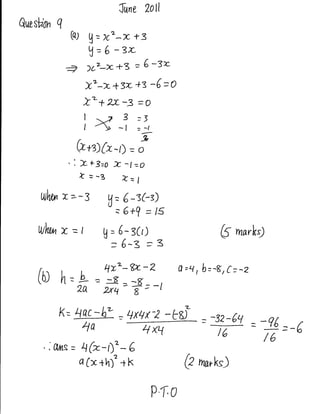 June 2011
Question 9
(a) y = x² - x + 3
y = 6 - 3x
⇒ x² - x + 3 = 6 - 3x
x² - x + 3x + 3 - 6 = 0
x² + 2x - 3 = 0
1 3 = 3
1 -1 = -1
2
(x+3)(x-1) = 0
∴ x+3=0 x-1=0
x = -3 x = 1
When x = -3 y = 6 - 3(-3)
= 6+9 = 15
When x = 1 y = 6 - 3(1) (5 marks)
= 6-3 = 3
4x² - 8x - 2 a=4, b=-8, c=-2
(b) h = b/2a = -8/2×4 = -8/8 = -1
K = 4ac - b²/4a = 4×4×-2 - (-8)²/4×4 = -32-64/16 = -96/16 = -6
∴ ans = 4(x-1)² - 6
a(x+h)² + k (2 marks)
P.T.O